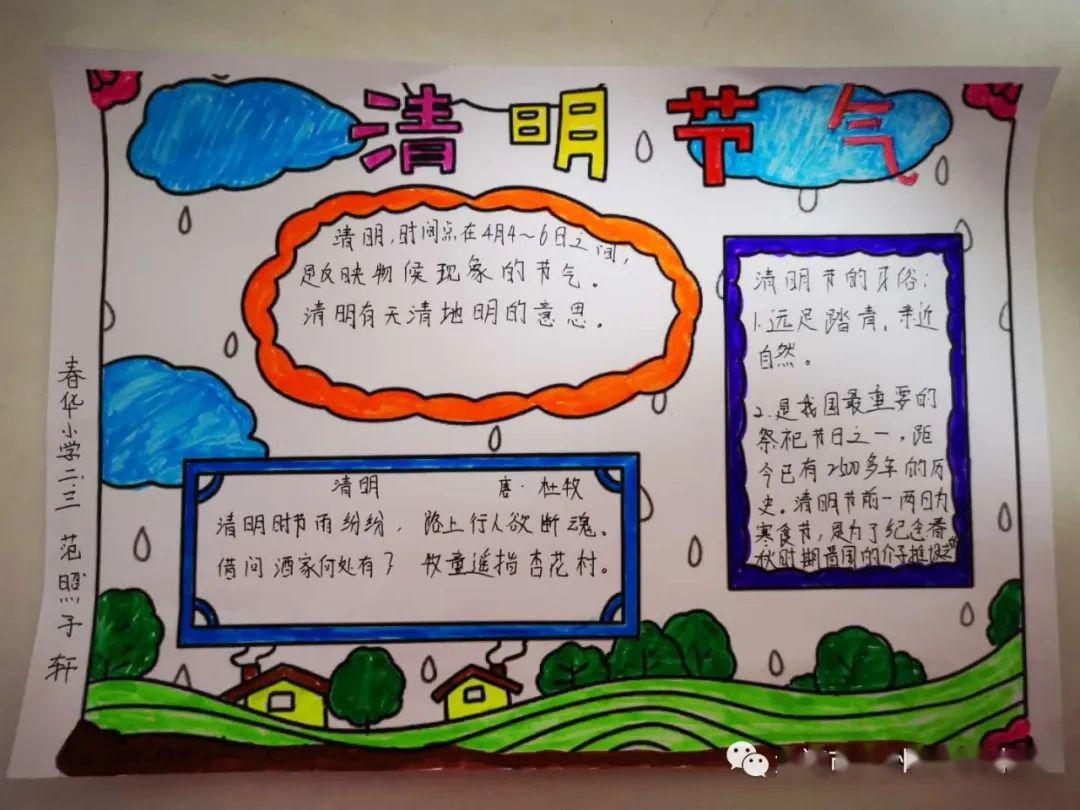 清明节气
清明,时间点在4月4~6日之间,
是反映物候现象的节气。
清明有天清地明的意思。
清明节的习俗:
1.远足踏青,亲近
自然。
2.是我国最重要的
祭祀节日之一,距
今已有2500多年的历
史。清明节前一两日为
寒食节,是为了纪念春
秋时期晋国的介子推
清明 唐·杜牧
清明时节雨纷纷, 路上行人欲断魂。
借问酒家何处有? 牧童遥指杏花村。
春华小学二.三 范照子轩